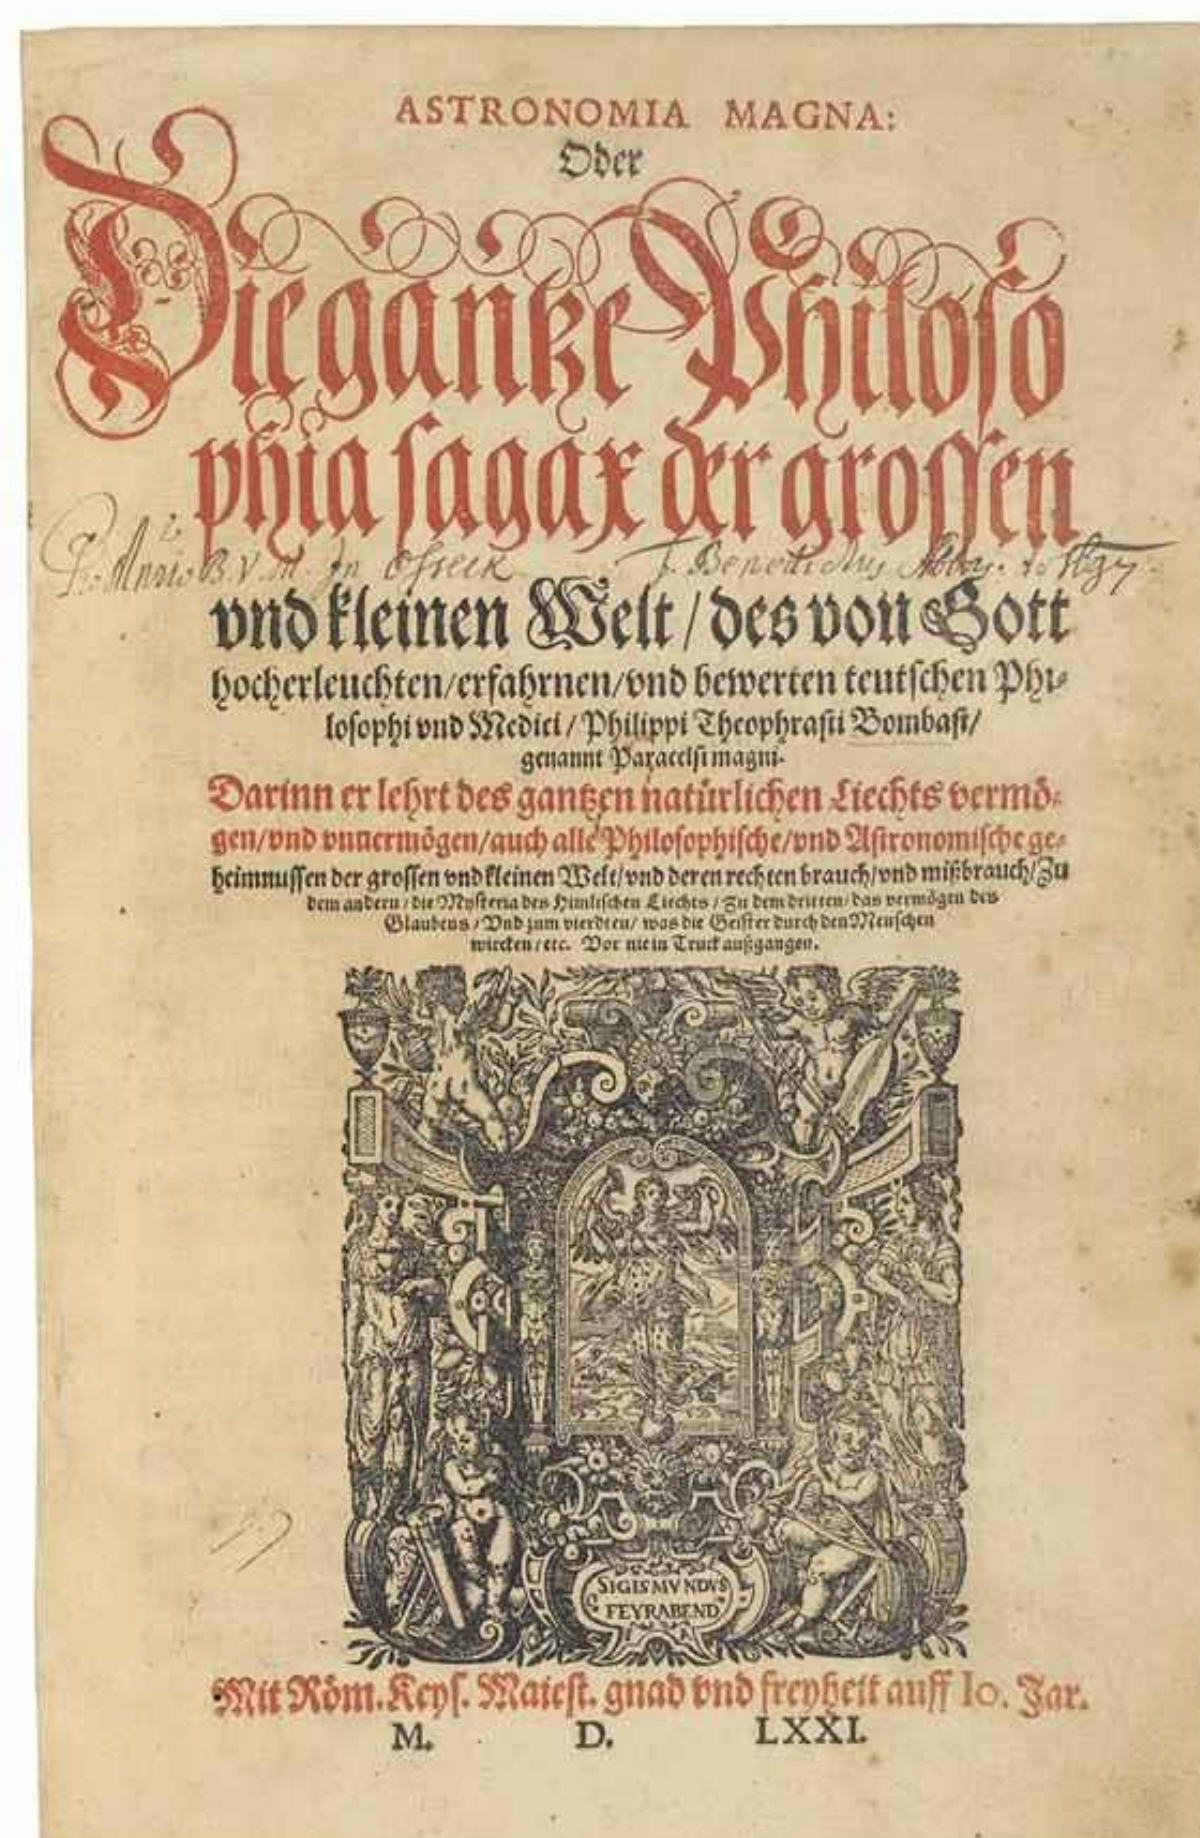 ASTRONOMIA MAGNA:
Oder
Die gantze Philoso
phia sagax der grossen
B.V.M. In
F. Benedictus
vnd kleinen Welt / des von Gott
hocherleuchten/erfahrnen/vnd bewerten teutschen Phi-
losophi vnd Medici / Philippi Theophrasti Bombast/
genannt Paracelsi magni.
Darinn er lehrt des gantzen natürlichen Liechts vermö-
gen/vnd vnuermögen/auch alle Philosophische/vnd Astronomische ge-
heimnussen der grossen vnd kleinen Welt/vnd deren rechten brauch/vnd mißbrauch/Zu
dem andern / die Mysteria des Himlischen Liechts / Zu dem dritten/das vermögen des
Glaubens / Vnd zum vierdten/ was die Geister durch den Menschen
wircken / etc. Vor nie in Truck außgangen.
SIGISMVNDVS
FEYRABEND
Mit Röm. Keys. Maiest. gnad vnd freyheit auff 10. Jar.
M. D. LXXI.